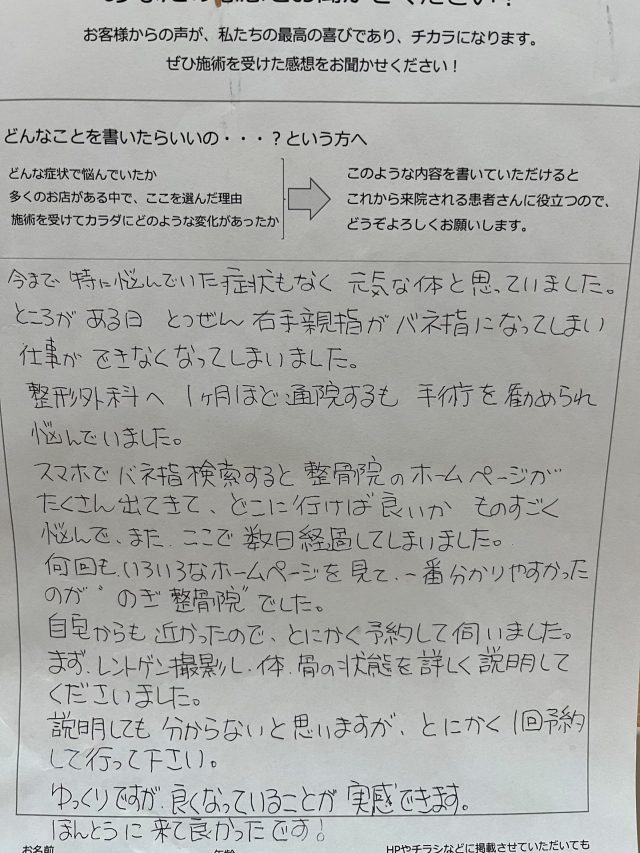 お客様からの声が、私たちの最高の喜びであり、チカラになります。
ぜひ施術を受けた感想をお聞かせください！
どんなことを書いたらいいの・・・？という方へ
どんな症状で悩んでいたか
多くのお店がある中で、ここを選んだ理由
施術を受けてカラダにどのような変化があったか
このような内容を書いていただけると
これから来院される患者さんに役立つので、
どうぞよろしくお願いします。
今まで 特に悩んでいた症状もなく 元気な体と思っていました。
ところが ある日 とつぜん 右手親指が バネ指になってしまい
仕事が できなくなってしまいました。
整形外科へ 1ヶ月ほど通院するも 手術を勧められ
悩んでいました。
スマホで バネ指検索すると 整骨院のホームページが
たくさん出てきて、どこに行けば良いか ものすごく
悩んで、また、ここで数日経過してしまいました。
何回も、いろいろなホームページを見て、一番分かりやすかった
のが〝のぎ整骨院〟でした。
自宅からも近かったので、とにかく予約して伺いました。
まず、レントゲン撮影し、体、骨の状態を詳しく説明して
くださいました。
説明しても 分からないと思いますが、とにかく1回予約
して行って下さい。
ゆっくりですが、良くなっていることが 実感できます。
ほんとうに来て良かったです！
お名前
HPやチラシなどに掲載させていただいても